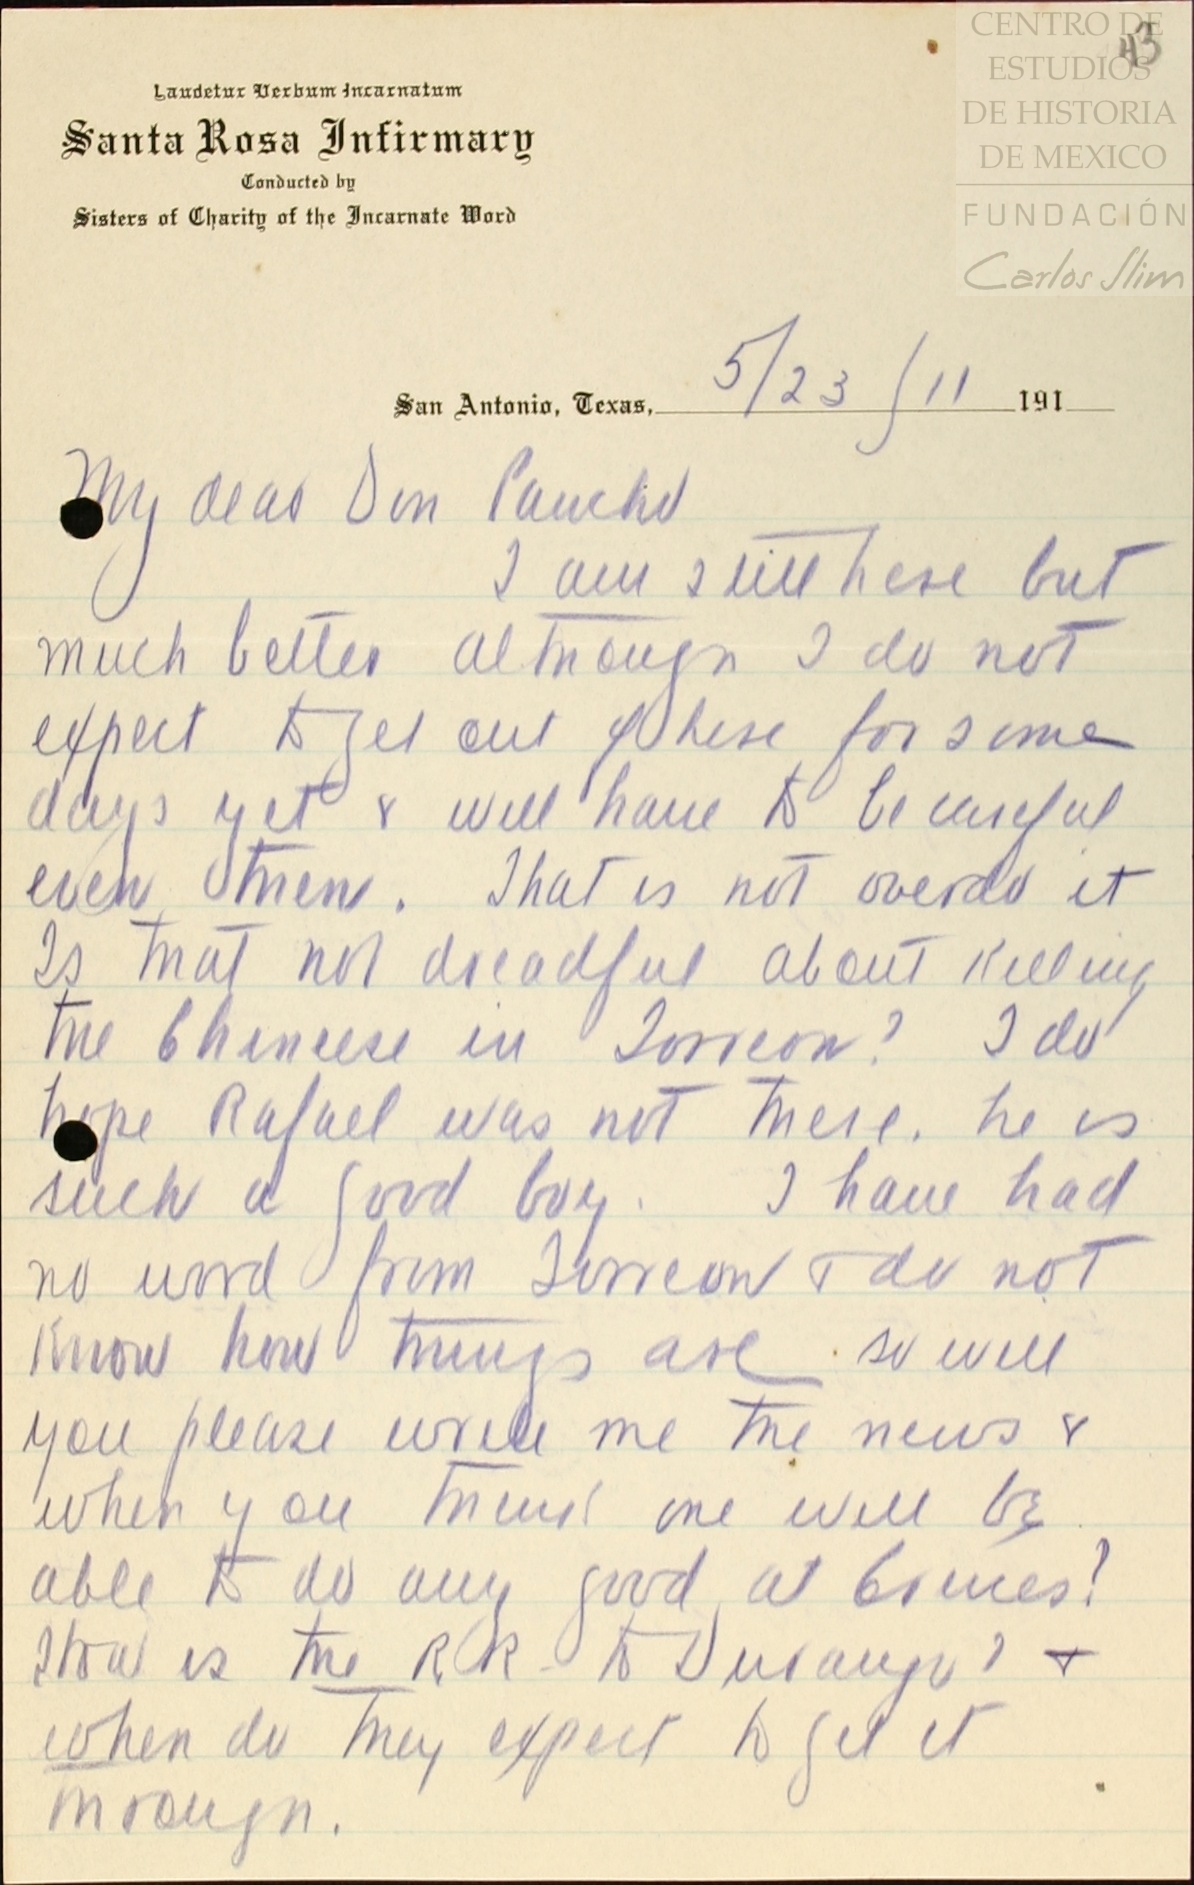 CENTRO DE
ESTUDIOS
DE HISTORIA
DE MEXICO
FUNDACIÓN
Carlos Slim
43
Laudetur Verbum Incarnatum
Santa Rosa Infirmary
Conducted by
Sisters of Charity of the Incarnate Word
San Antonio, Texas, 5/23/11 191
My dear Don Pancho
I am still here but
much better although I do not
expect to get out of here for some
days yet & will have to be careful
even then. That is not overdo it
Is that not dreadful about killing
the Chineese in Torreon? I do
hope Rafael was not there. he is
such a good boy. I have had
no word from Torreon & do not
know how things are. so will
you please write me the news &
when you think one will be
able to do any good at
How is the R.R. to Durango? &
when do they expect to get it
through.